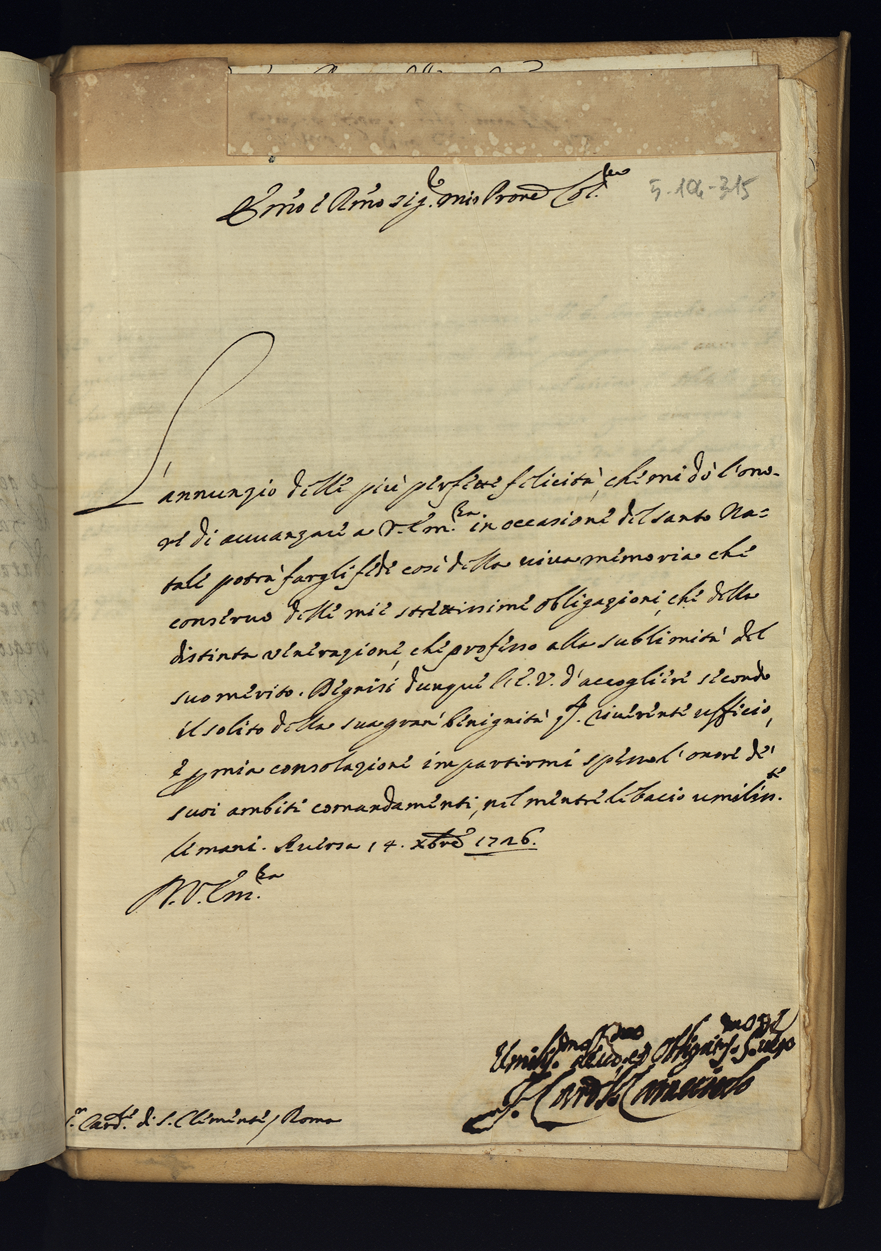 Emo e Rmo Sig.re mio Prone Col.mo
5.106-315
L'annunzio delle più perfette felicità, che mi dò l'ono-
re di avvanzare a V. Em.za in occasione del santo Na=
tale potrà fargli fede così della viva memoria che
conservo delle mie strettissime obligazioni, che della
distinta venerazione, che professo alla sublimità del
suo merito. Degnisi dunque l'E.V. d'accogliere secondo
il solito della sua gran benignità q.to riverente ufficio,
e p mia consolazione impartirmi spesso l'onore de'
suoi ambiti comandamenti, nel mentre le bacio umiliss.te
le mani. Aversa 14. Xbre 1726.
D. V. Em.za
Umiliss.mo
J. Card.
Card.le di S. Clemente / Roma